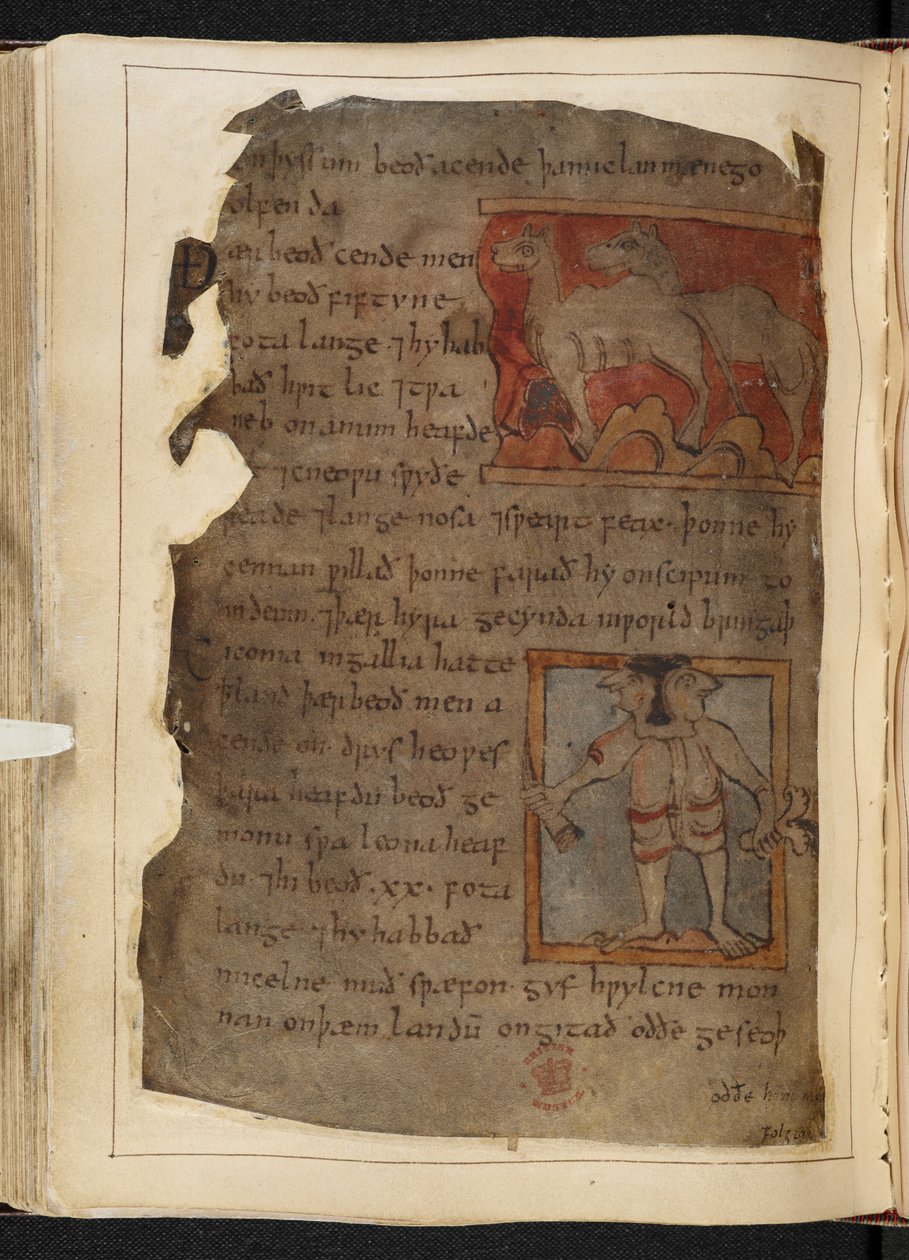 on þyssum beoð acende þa miclan mænego
olfenda
Ðær beoð cende men
hy beoð fiftyne
fota lange ⁊ hy hab
bað hƿit lic ⁊ tƿa
neb on anum heafde
⁊ cneoƿu sƿyðe
reade ⁊ lange nosa ⁊ sƿeart feax · þonne hy
cennan ƿillað þonne farað hy on scipum to
indeum · ⁊ þær hyra gecynda in ƿorold bringaþ
Ciconia in gallia hatte
þ land þær beoð men a
cende on ðrys heoƿes
þara heafdu beoð ge
monu sƿa leona heaf
du · ⁊ hi beoð · xx · fota
lange ⁊ hy habbað
micelne muð sƿa fon · gyf hƿylcne mon
nan on þæm landū ongitað oððe geseoþ
oððe him
folgi
BRITISH
MUSEUM